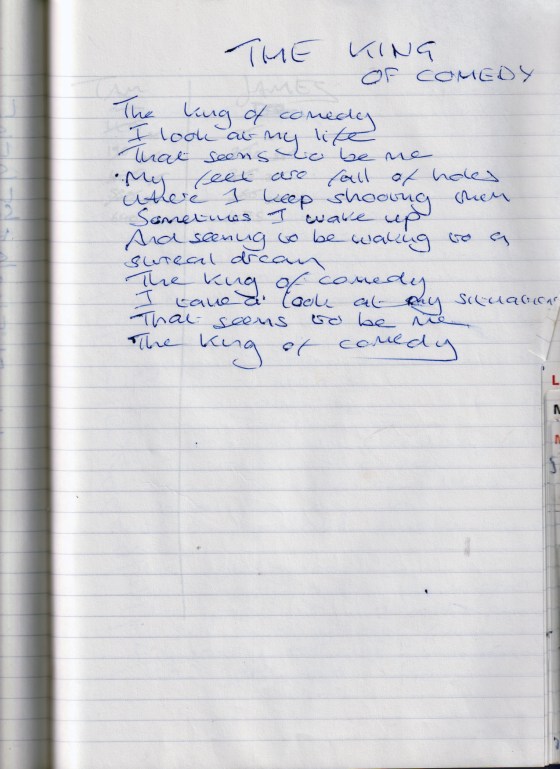 THE KING
OF COMEDY
The King of comedy
I look at my life
That seems to be me
My feet are full of holes
Where I keep shooting them
Sometimes I wake up
And seeming to be waking to a
surreal dream
The King of comedy
I take a look at my situation
That seems to be me
The King of comedy
L